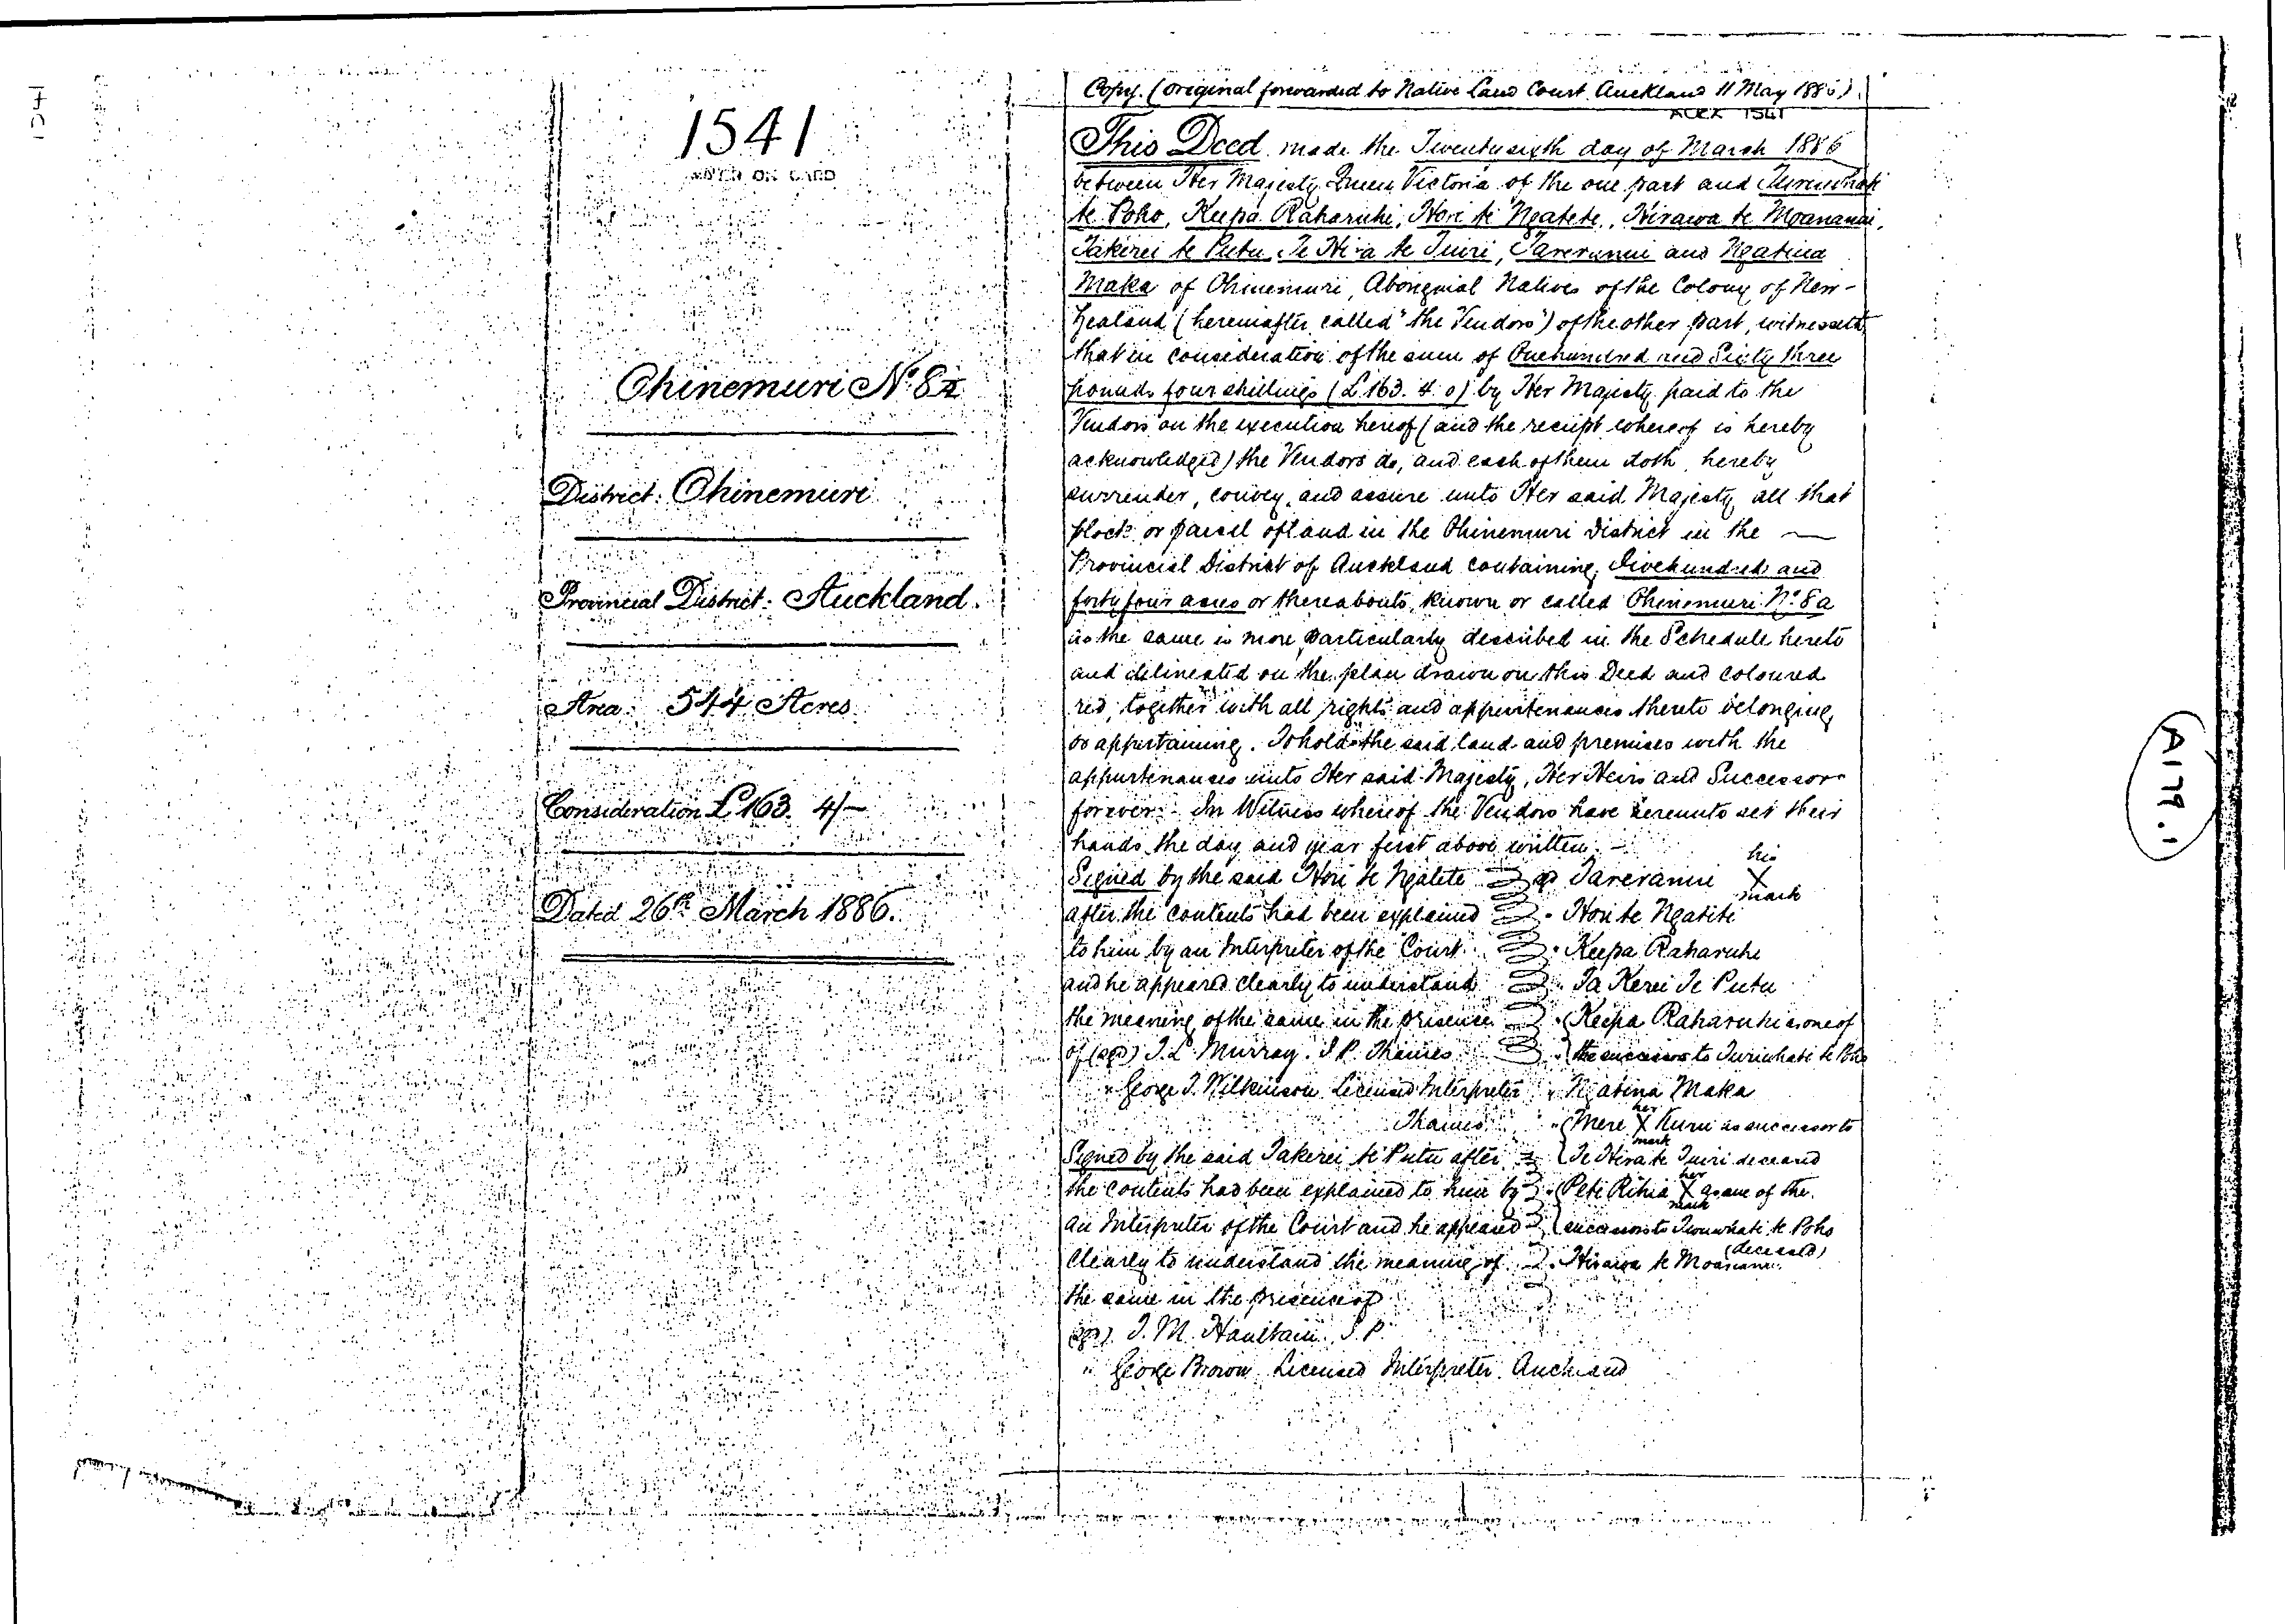 1541
1541
Ohinemuri No. 8a
District: Ohinemuri
Provincial District: Auckland.
Area: 544 Acres.
Consideration £163. 4/-
Dated 26th March 1886.
Copy. (original forwarded to Native Land Court Auckland 11 May 1886).
AUCK 1541
This Deed made the Twentysixth day of March 1886
between Her Majesty Queen Victoria of the one part and Turiwhati
te Poho, Keepa Raharuhi, Hori te Ngatete, Hirawa te Moananui,
Takerei te Putu, Te Hira te Tuiri, Tareranui and Ngatina
Maka of Ohinemuri, Aboriginal Natives of the Colony of New-
Zealand (hereinafter called "the Vendors") of the other part, witnesseth
that in consideration of the sum of Onehundred and Sixty three
pounds four shillings (£163. 4. 0) by Her Majesty paid to the
Vendors on the execution hereof (and the receipt whereof is hereby
acknowledged) the Vendors do, and each of them doth, hereby
surrender, convey, and assure unto Her said Majesty all that
block or parcel of land in the Ohinemuri District in the
Provincial District of Auckland containing Fivehundred and
forty four acres or thereabouts, known or called Ohinemuri No. 8a
as the same is more particularly described in the Schedule hereto
and delineated on the plan drawn on this Deed and coloured
red, together with all rights and appurtenances thereto belonging
or appertaining. To hold the said land and premises with the
appurtenances unto Her said Majesty, Her Heirs and Successors
forever. In Witness whereof the Vendors have hereunto set their
hands the day and year first above written.
Signed by the said Hori te Ngatete
after the contents had been explained
to him by an Interpreter of the Court
and he appeared clearly to understand
the meaning of the same in the presence
of (sgd) T. L. Murray. J.P. Thames
" George T. Wilkinson Licensed Interpreter
Thames
Signed by the said Takerei te Putu after
the contents had been explained to him by
an Interpreter of the Court and he appeared
clearly to understand the meaning of
the same in the presence of
(sgd). T. M. Haultain. J.P.
" George Brown Licensed Interpreter. Auckland
Tareranui his X mark
" Hori te Ngatete
" Keepa Raharuhi
" Ta Kerei Te Putu
" Keepa Raharuhi as one of
the successors to Turiwhati te Poho
" Ngatina Maka
" Mere her X mark Kuru as successor to
Te Hira te Tuiri deceased
" Peti Rihia her X mark as one of the
successors to Turiwhati te Poho
(deceased)
" Hirawa te Moananui
A179.1